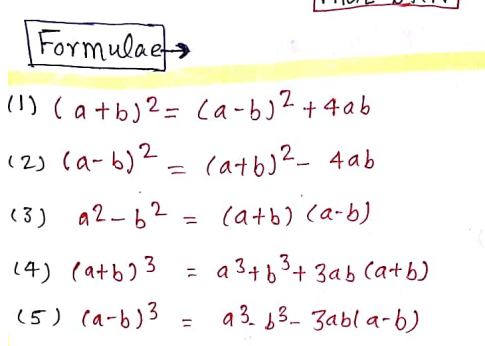 Formulae →
(1) (a+b)2 = (a-b)2 + 4ab
(2) (a-b)2 = (a+b)2 - 4ab
(3) a2 - b2 = (a+b) (a-b)
(4) (a+b)3 = a3 + b3 + 3ab (a+b)
(5) (a-b)3 = a3 - b3 - 3ab( a-b)